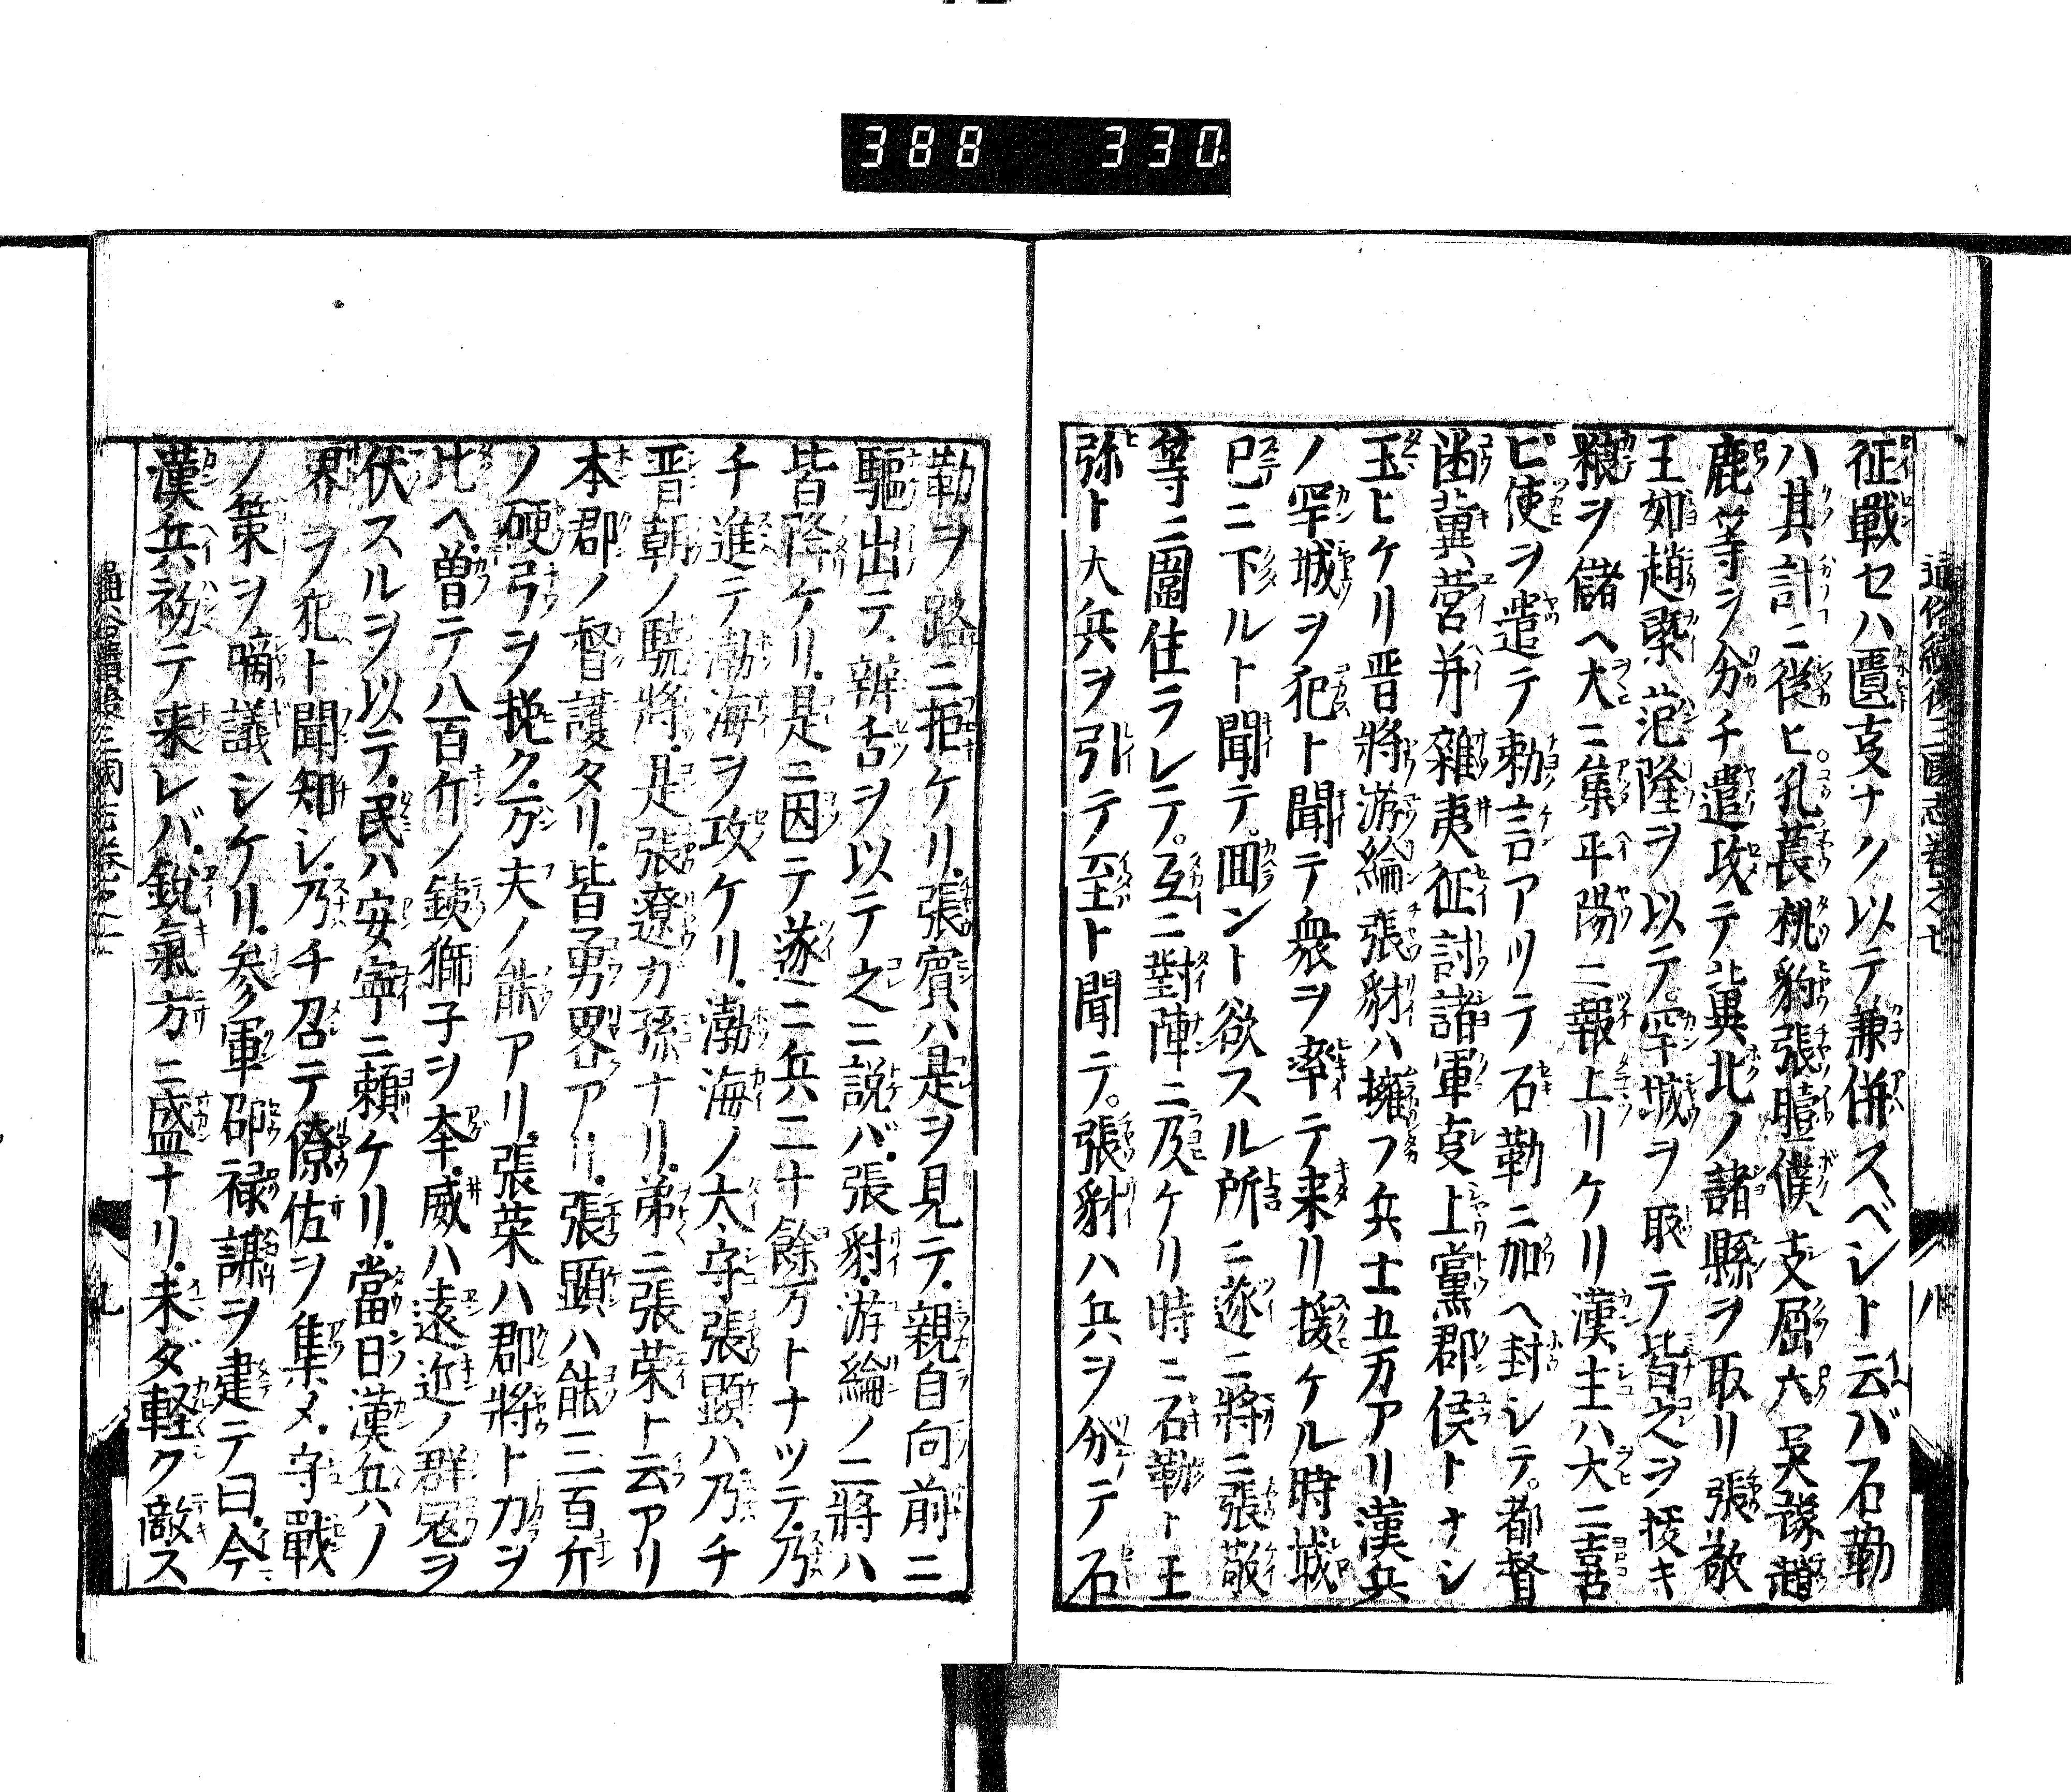 388 330
通俗續後三國志卷之七
八
征戰セハ匱支ナク以テ兼併スベシト云バ石勒
ハ其計ニ從ヒ。孔萇桃豹張曀僕支屈六呉豫趙
鹿等ヲ分チ遣攻テ冀北ノ諸縣ヲ取リ張敬
王如趙槩范隆ヲ以テ。罕城ヲ取テ皆之ヲ援キ
粮ヲ儲ヘ大ニ集平陽ニ報上リケリ漢主ハ大ニ喜
ビ使ヲ遣テ勅言アリテ石勒ニ加ヘ封シテ。都督
幽冀営并雜夷征討諸軍支上黨郡侯トナシ
玉ヒケリ晋將游綸張豺ハ擁フ兵士五万アリ漢兵
ノ罕城ヲ犯ト聞テ衆ヲ率テ来リ援ケル時城
已ニ下ルト聞テ。囬ント欲スル所ニ遂ニ將ニ張敬
等ニ圍住ラレテ。互ニ對陣ニ及ケリ時ニ石勒ト王
弥ト大兵ヲ引テ至ト聞テ。張豺ハ兵ヲ分テ石
勒ヲ路ニ拒ケリ.張賓ハ是ヲ見テ.親自向前ニ
驅出テ.辨舌ヲ以テ之ニ説バ.張豺.游綸ノ二將ハ
皆降ケリ.是ニ因テ遂ニ兵二十餘万トナツテ.乃
チ進テ渤海ヲ攻ケリ.渤海ノ大守張顕ハ乃チ
晋朝ノ驍將.是張遼カ孫ナリ.弟ニ張荣ト云アリ
本郡ノ督護タリ.皆勇畧アリ.張顕ハ能三百斤
ノ硬弓ヲ挽ク.万夫ノ能アリ.張荣ハ郡將ト力ヲ
比ヘ.曽テ八百斤ノ鉄獅子ヲ夲.威ハ遠近ノ群冦ヲ
伏スルヲ以テ.民ハ安寧ニ頼ケリ.當日漢兵ハノ
界ヲ犯ト聞知シ.乃チ召テ僚佐ヲ集メ.守戰
ノ策ヲ啇議シケリ.参軍邵禄謀ヲ建テ曰.今
漢兵初テ来レバ.鋭氣方ニ盛ナリ.未タ軽ク敵ス
通俗續後三國志卷之七
九